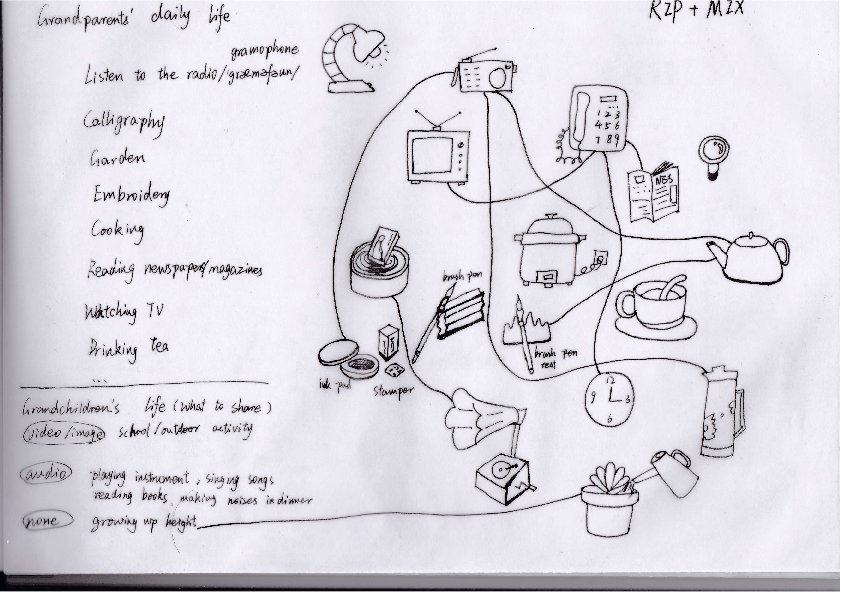 RZP + MZX
Grandparents' daily life
gramophone
Listen to the radio/græməfəun/
Calligraphy
Garden
Embroidery
Cooking
Reading newspaper/magazines
Watching TV
Drinking tea
...
Grandchildren's life (What to share)
video/image school/outdoor activity
audio playing instrument, singing songs
reading books, making noises in dinner
none growing up height
1 2 3
4 5 6
7 8 9
NES
brush pen
brush pen
rest
ink pad
stamper
12
9 3
6